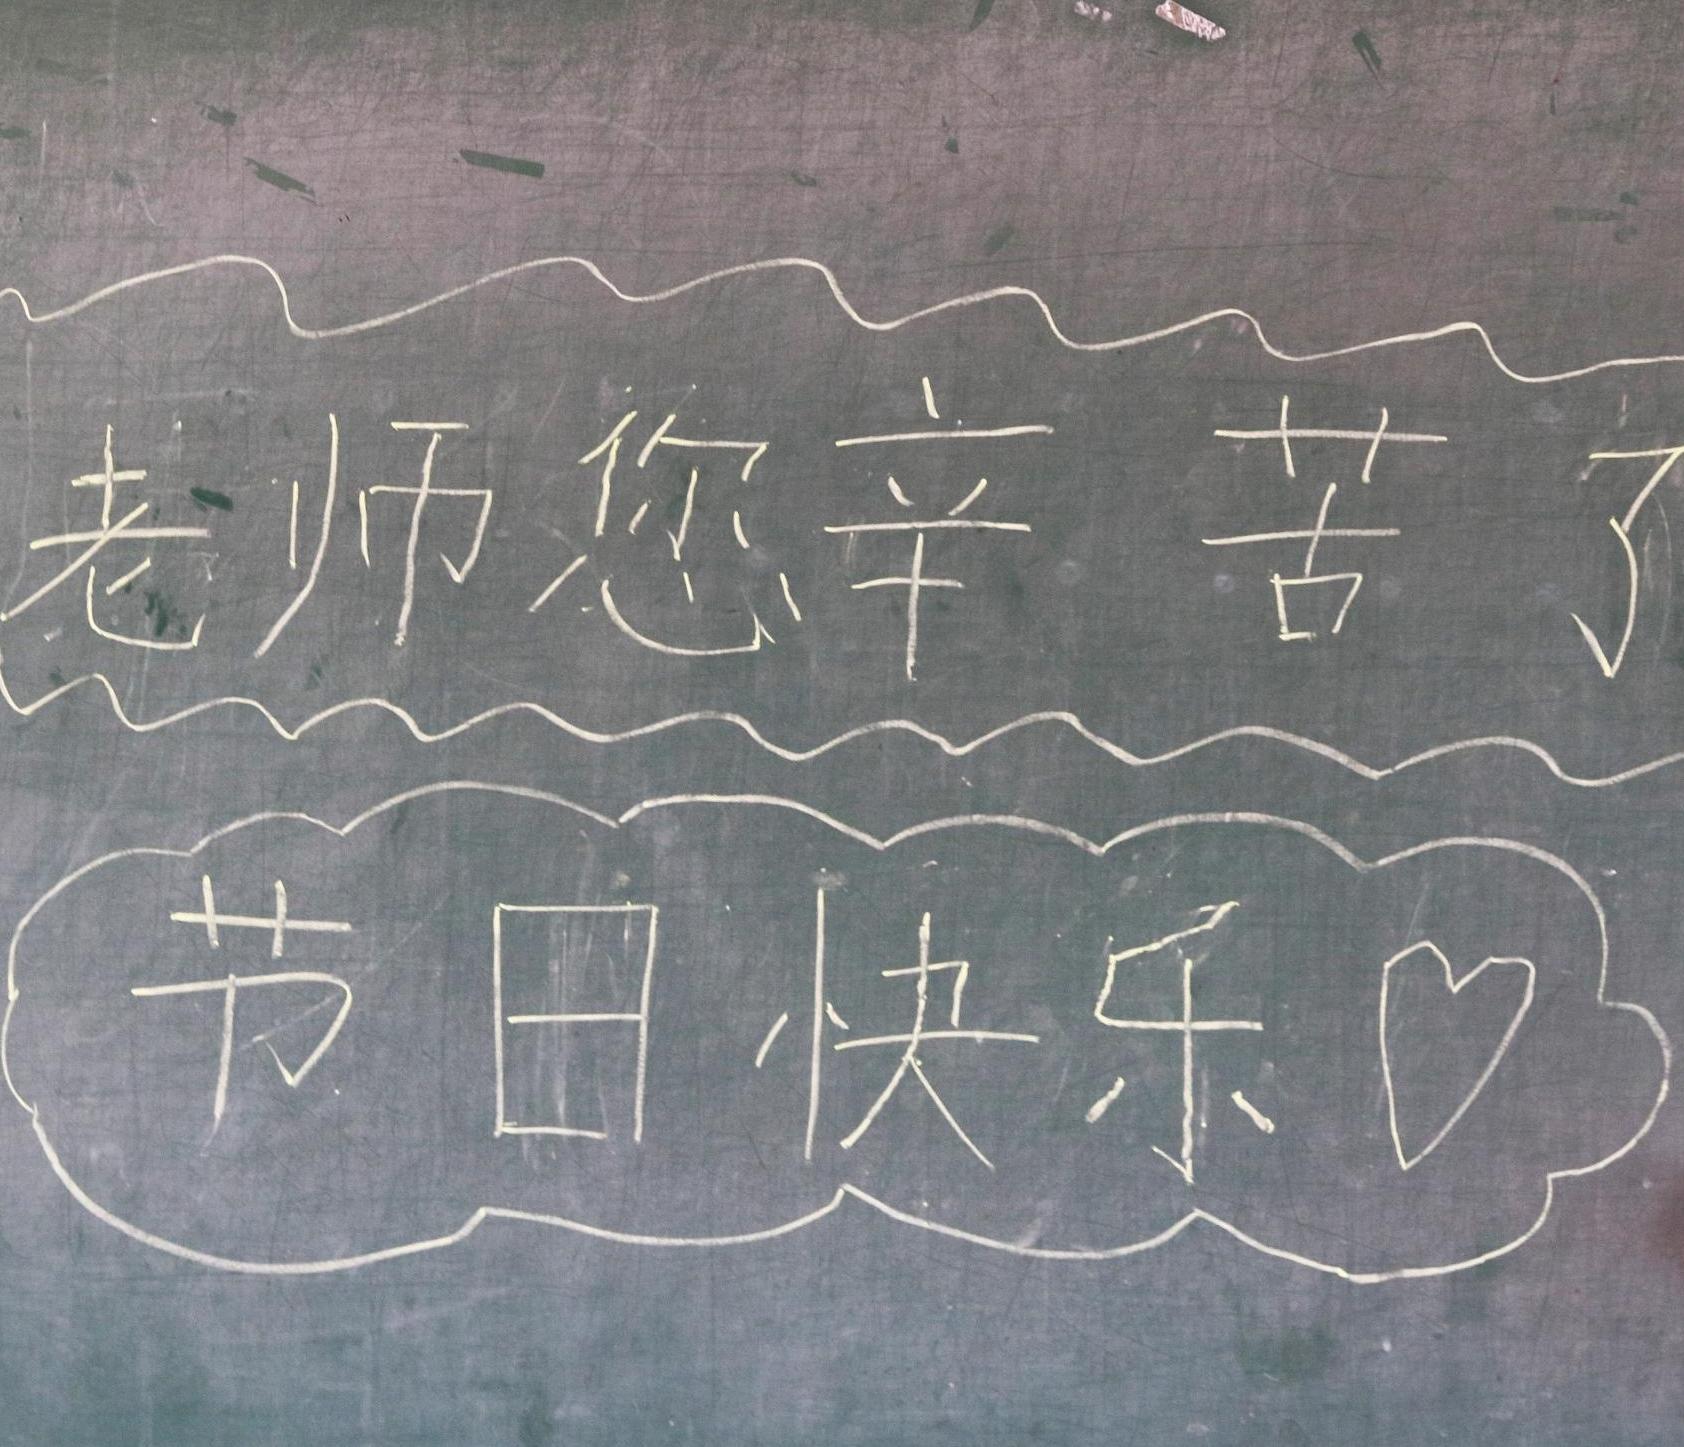 老师您辛苦了
节日快乐♡